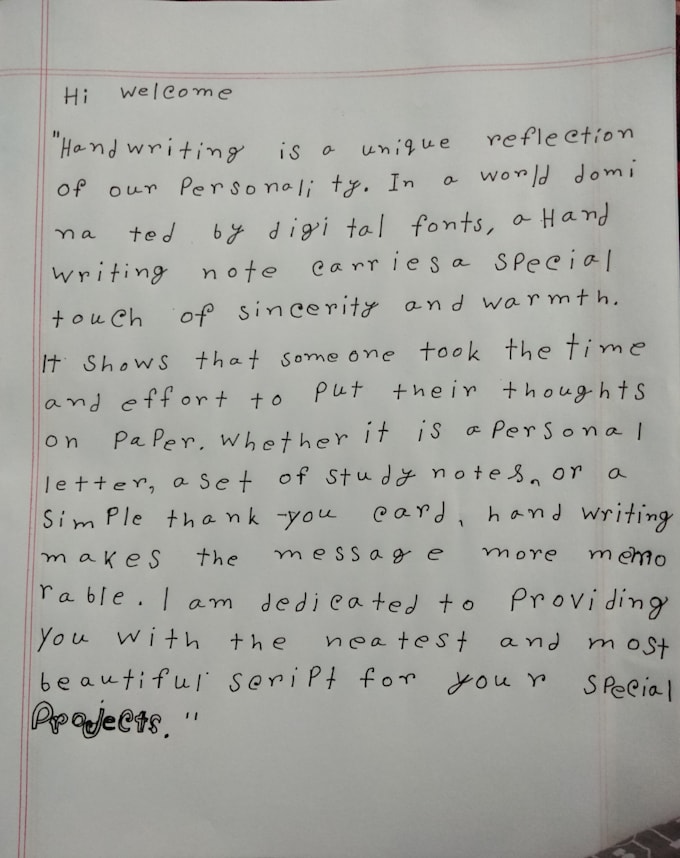 Hi welcome
"Hand writing is a unique reflection
of our Personali ty. In a world domi
na ted by digi tal fonts, a Hand
writing note carries a special
touch of sincerity and warmth.
It shows that some one took the time
and effort to put their thoughts
on PaPer. whether it is a Personal
letter, a set of study notes, or a
SimPle thank-you card, hand writing
makes the message more memo
rable. I am dedicated to Providing
you with the neatest and most
beautiful script for your SPecial
Projects."